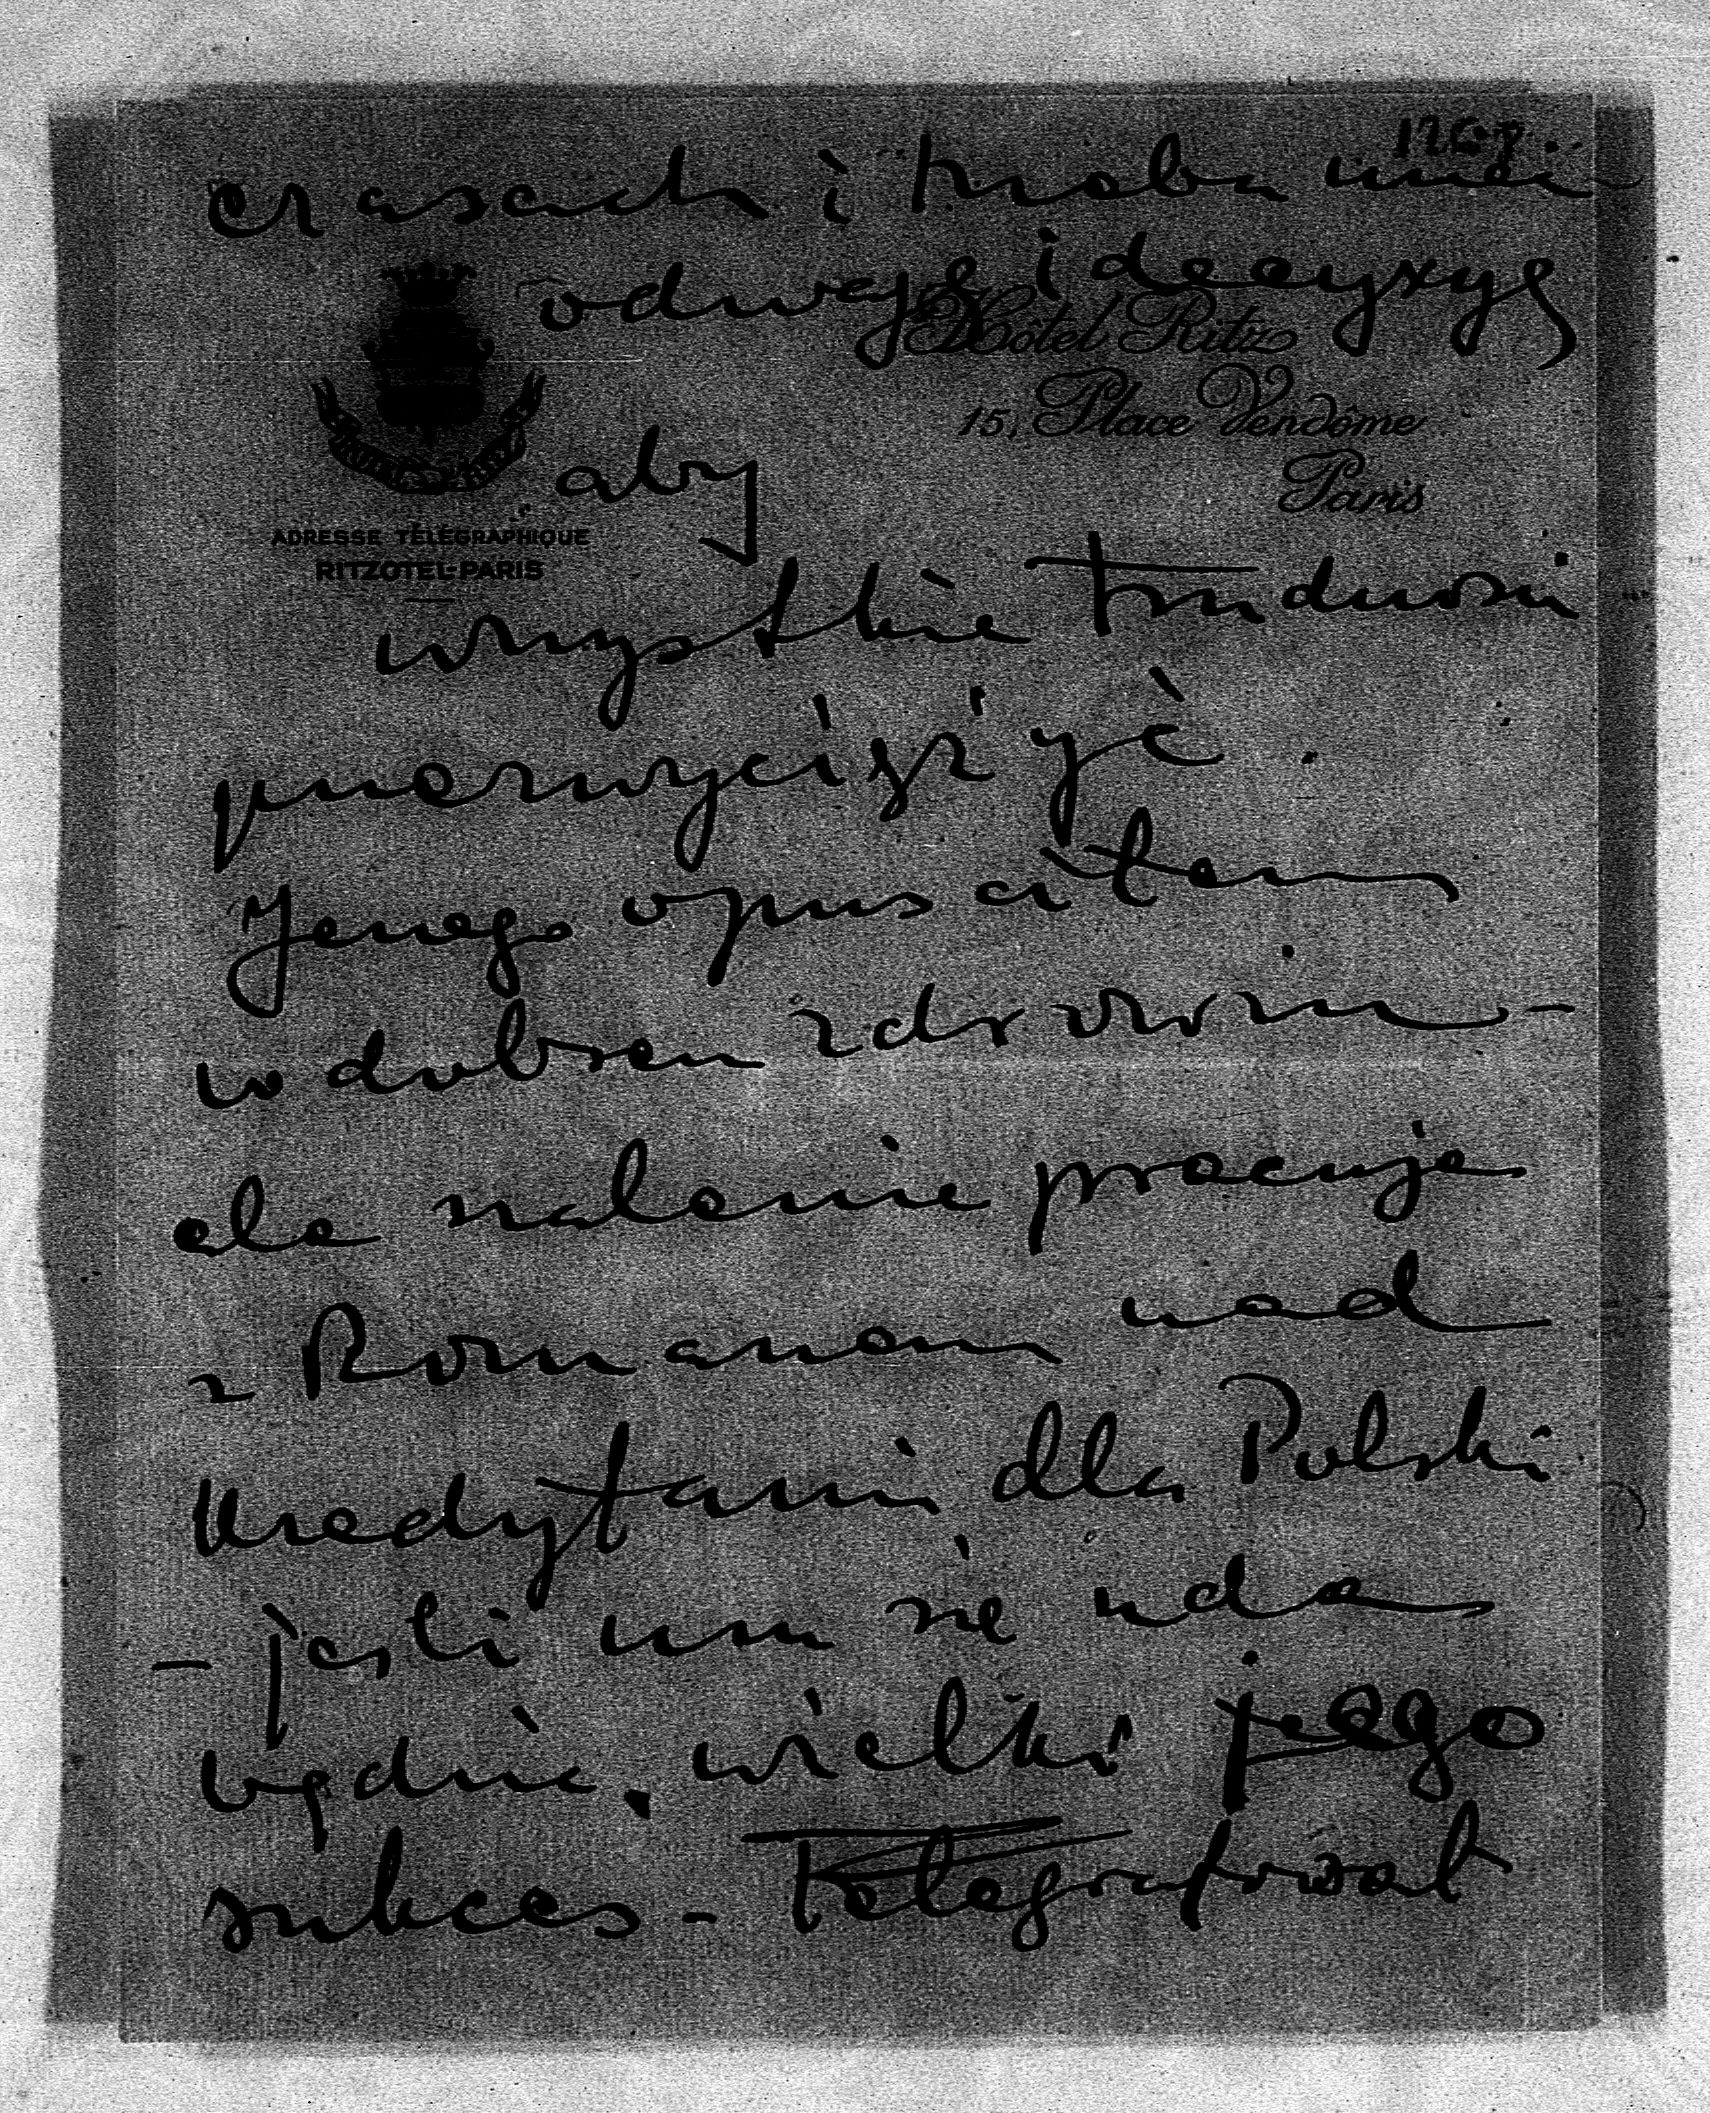 czasach i trzeba mieć
odwagę i decyzyę
Hôtel Ritz
15, Place Vendôme
Paris
aby
ADRESSE TÉLÉGRAPHIQUE
RITZOTEL-PARIS
wszystkie trudności
przezwyciężyć.
Jerzego opuściłem
w dobrem zdrowiu –
ale szalenie pracuje
z Romanem nad
kredytami dla Polski
– jeśli mu się uda
będzie, wielki jego
sukces – Telegrafował